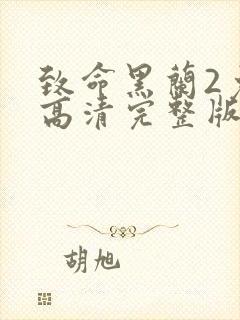 致命黑蘭2
高清完整版
胡旭